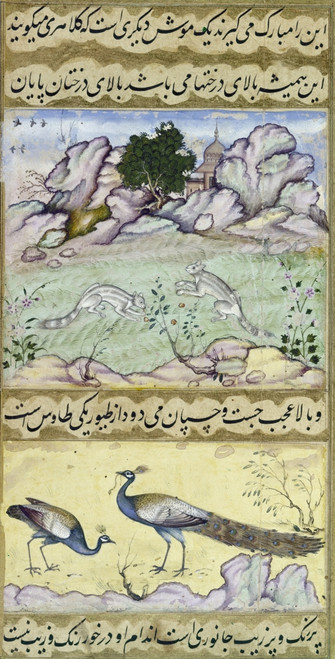 این را مبارک می کیرند یک موش دیکری است که کلاهری میکویند
این همیشه بالای درختها می باشد بالای درختان پایان
و بالا عجب جست و چسپان می دود از طیور یکی طاوس است
پرنک و پرزیب جانوری است اندام او در خور رنک و زیب نیست